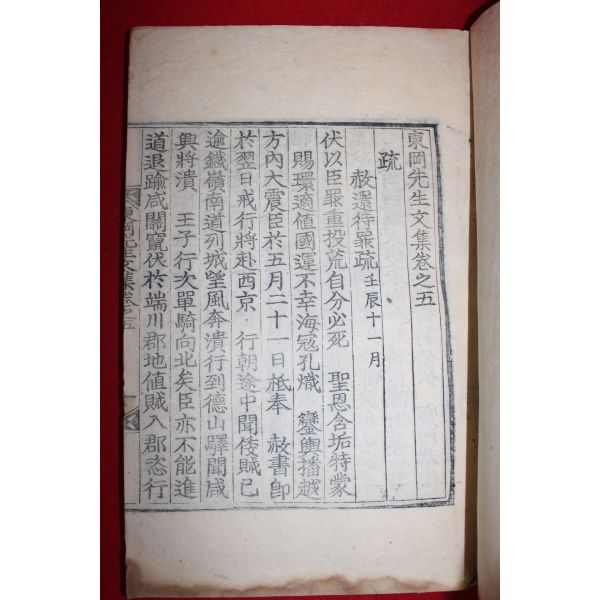 東岡先生文集卷之五
疏
赦還待罪疏 壬辰十一月
伏以臣罪重投荒自分必死 聖恩含垢特蒙
賜環適値國運不幸海冦孔熾 鑾輿播越
方內大震臣於五月二十一日祗奉 赦書卽
於翌日戒行將赴西京 行朝途中聞倭賊已
逾鐵嶺南道列城望風奔潰行到德山驛聞咸
興將潰 王子行次單騎向北矣臣亦不能進
道退踰咸關竄伏於端川郡地値賊入郡恣行
東岡先生文集卷之五